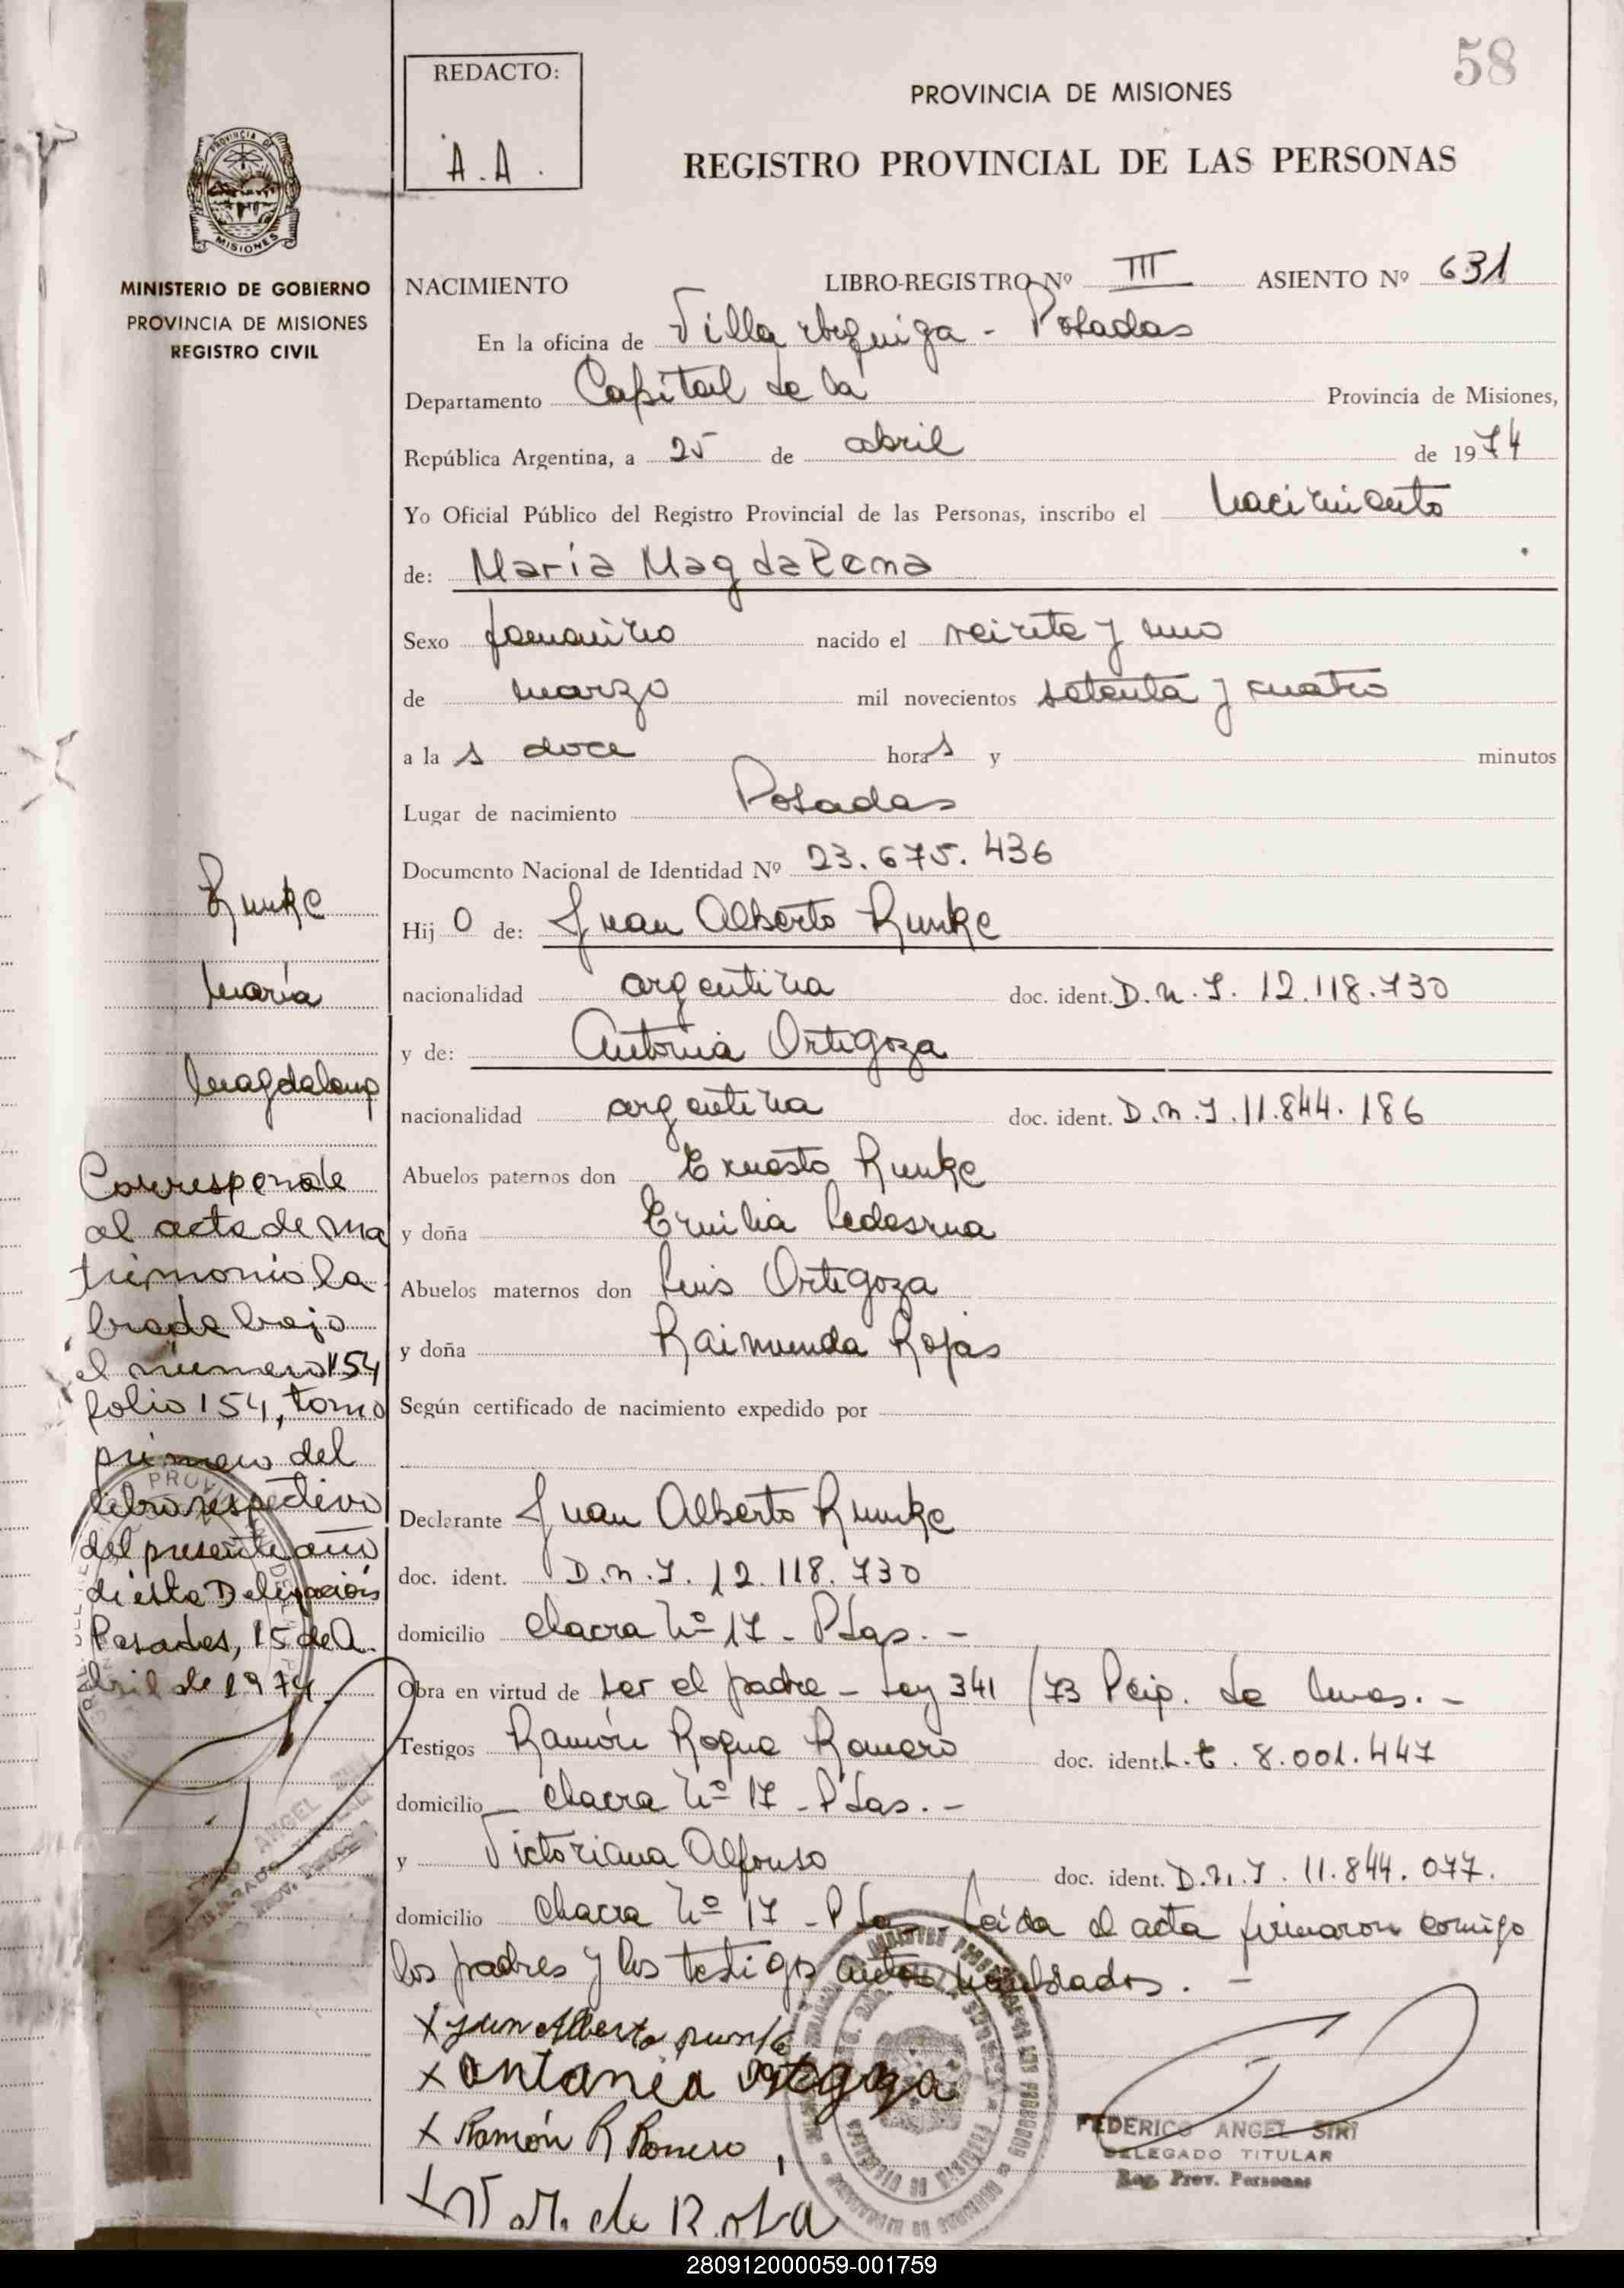 58
REDACTO:
A.A.
PROVINCIA DE MISIONES
REGISTRO PROVINCIAL DE LAS PERSONAS
PROVINCIA DE
MISIONES
MINISTERIO DE GOBIERNO
PROVINCIA DE MISIONES
REGISTRO CIVIL
NACIMIENTO LIBRO-REGISTRO Nº III ASIENTO Nº 631
En la oficina de Villa Urquiza - Posadas
Departamento Capital de la Provincia de Misiones,
República Argentina, a 25 de abril de 1974
Yo Oficial Público del Registro Provincial de las Personas, inscribo el Nacimiento
de: María Magdalena
Sexo femenino nacido el veinte y uno
de marzo mil novecientos setenta y cuatro
a la s doce horas y minutos
Lugar de nacimiento Posadas
Documento Nacional de Identidad Nº 23.675.436
Hij o de: Juan Alberto Runke
nacionalidad argentina doc. ident. D.N.I. 12.118.730
y de: Antonia Ortigoza
nacionalidad argentina doc. ident. D.N.I. 11.844.186
Abuelos paternos don Ernesto Runke
y doña Emilia Ledesma
Abuelos maternos don Luis Ortigoza
y doña Raimunda Rojas
Según certificado de nacimiento expedido por
Declarante Juan Alberto Runke
doc. ident. D.N.I. 12.118.730
domicilio Chacra Nº 17 - Pdas. -
Obra en virtud de ser el padre - Ley 341/73 Pcip. de Mnes. -
Testigos Ramón Roque Romero doc. ident. L.E. 8.001.447
domicilio Chacra Nº 17 - Pdas. -
y Victoriana Alfonso doc. ident. D.N.I. 11.844.077.
domicilio Chacra Nº 17 - Pdas - Leída el acta firmaron comigo
los padres y los testigos antes nombrados. -
x Juan Alberto Runke
x Antania Ortegoza
x Ramón R Romero
x V. A. de
FEDERICO ANGEL SIRI
DELEGADO TITULAR
Reg. Prov. Personas
Runke
María
Magdalena
Corresponde
al acta de ma
trimonio la
brada bajo
el numero 154
folio 154, tomo
primero del
libro respectivo
del presente año
di esta Delegación
Posadas, 15 de A.
bril de 1974.
280912000059-001759